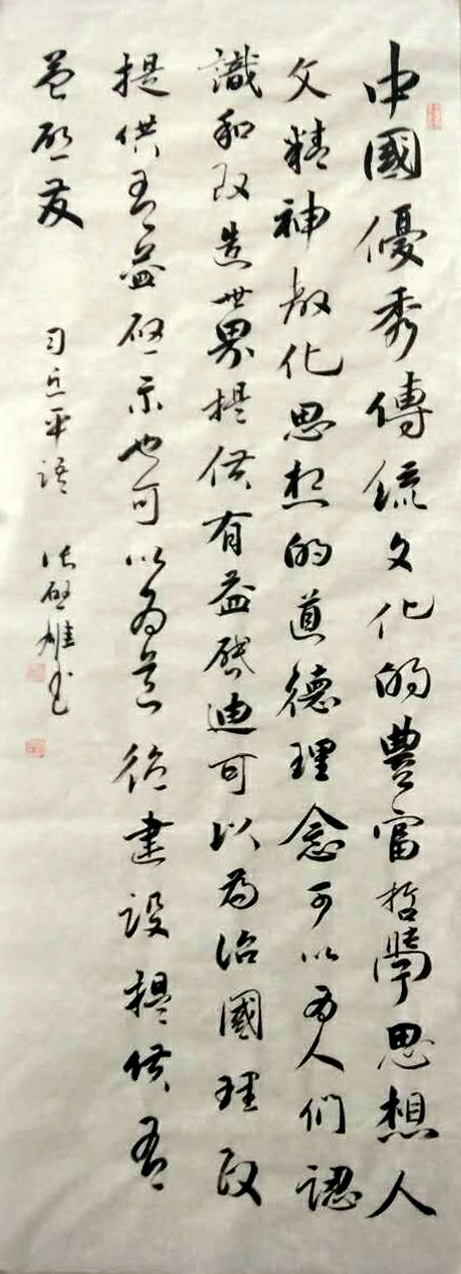 中國優秀傳統文化的豐富哲學思想人
文精神教化思想的道德理念可以為人們認
識和改造世界提供有益啓迪可以為治國理政
提供有益啓示也可以為道德建設提供有
益啟发
习近平語 啓雄书